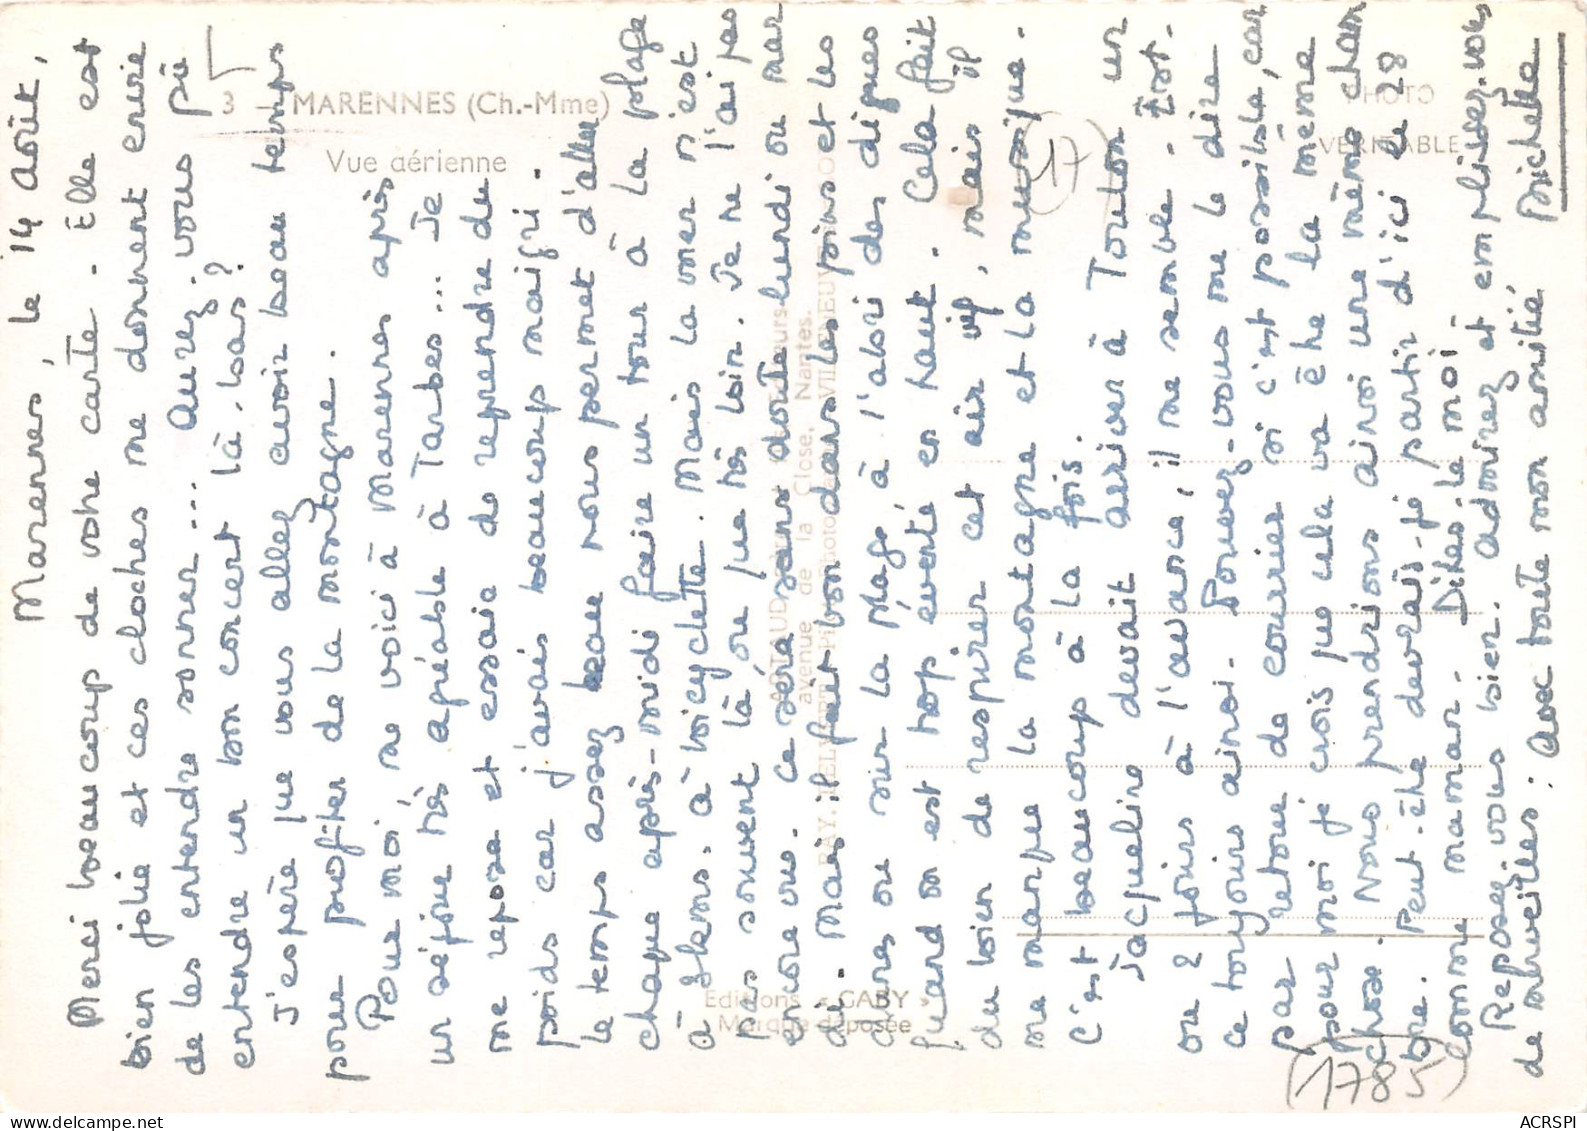 Marennes, le 14 Août,
Merci beaucoup de votre carte. Elle est
bien jolie et ces cloches me donnent envie
de les entendre sonner... Aurez-vous pû
entendre un bon concert là-bas?
J'espère que vous allez avoir beau temps
pour profiter de la montagne.
Pour moi, me voici à Marennes après
un séjour très agréable à Tarbes... Je
me repose et essaie de reprendre du
poids car j'avais beaucoup maigri.
Le temps assez beau nous permet d'aller
chaque après-midi faire un tour à la plage
à bicyclette. Mais la mer n'est
pas souvent là ou que très loin. Je ne l'ai pas
encore vue. Ce sera sans doute lundi ou mar
di. Mais il fait bon dans les pins et les
dunes ou sur la plage, à l'abri des digues
quand on est trop éventé, en haut. Cela fait
du bien de respirer cet air vif, mais il
me manque la montagne et la musique.
C'est beaucoup à la fois.
Jacqueline devait arriver à Toulon un
ou 2 jours à l'avance, il me semble.
ce toujours ainsi. Pouvez-vous me le dire
par retour de courrier si c'est possible, car
pour moi je crois que cela va être la même
chose. Nous prendrions ainsi une même cham
bre. Peut-être devrais-je partir d'ici le 28
comme maman. Dites-le moi
Reposez vous bien. Admirez et emplissez-vous
de merveilles. Avec toute mon amitié,
Michelle
3 - MARENNES (Ch.-Mme)
Vue aérienne
(17)
PHOTO
VERITABLE
avenue de la Close, Nantes.
Editions « GABY »
Marque déposée
(1785)
ACRSPI